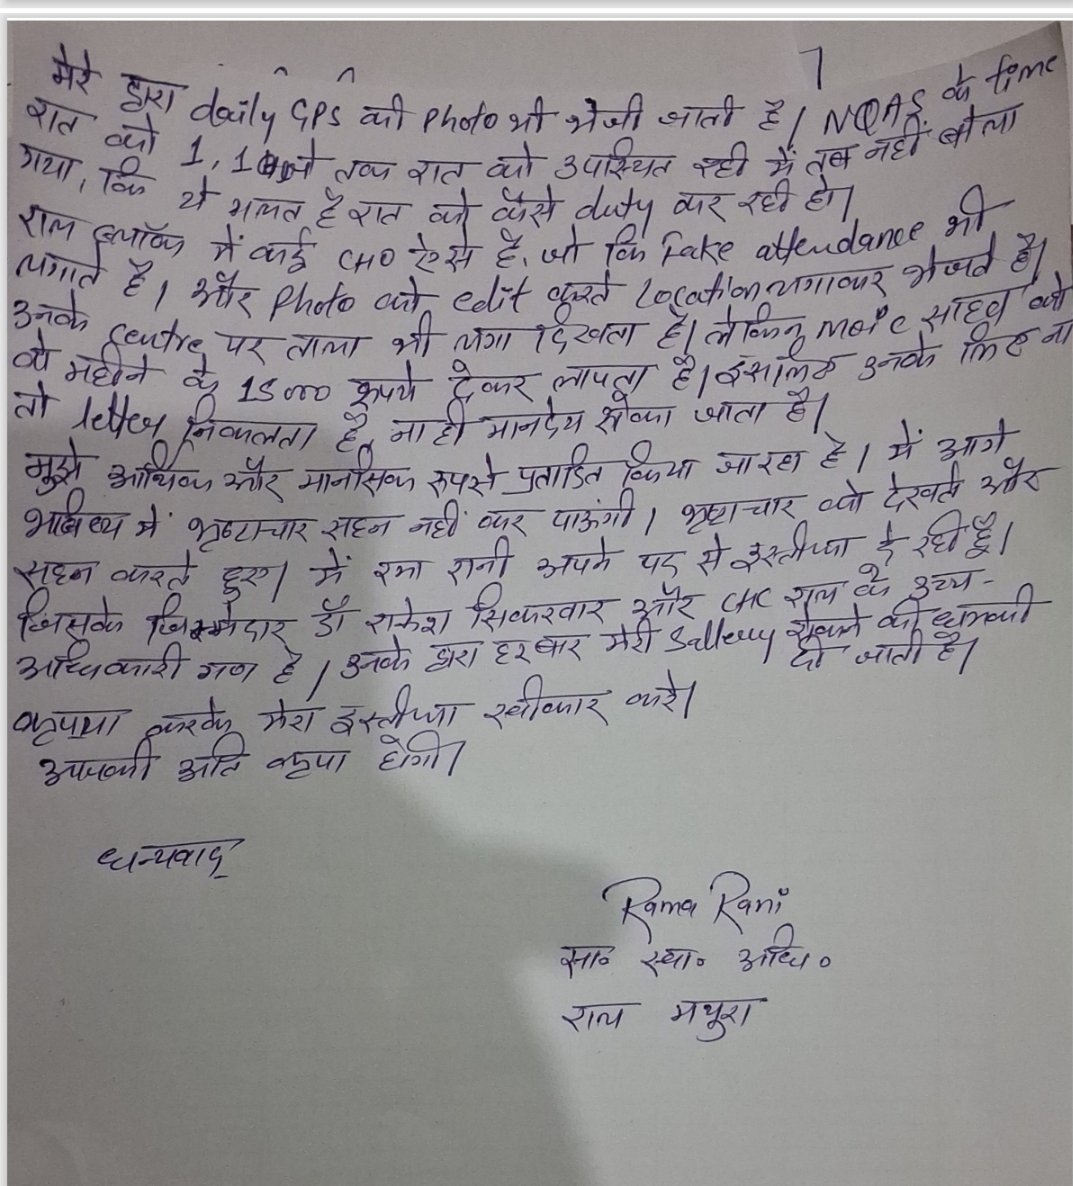 मेरे द्वारा daily GPS की Photo भी भेजी जाती है। NQAS के time
रात को 1, 1 बजे तक रात को उपस्थित रही में तब नहीं बोला
गया, कि ये गलत है रात को कैसे duty कर रही हो।
राल ब्लॉक में कई CHO ऐसे है, जो कि Fake attendance भी
लगाते है। और Photo को edit करते Location लगाकर भेजते है।
उनके centre पर ताला भी लगा दिखता है। लेकिन MOIC साहब को
वो महीने के 15000 रूपये देकर लापता है। इसलिए उनके लिए ना
तो letter निकलता है, ना ही मानदेय रोका जाता है।
मुझे आर्थिक और मानसिक रूपसे प्रताडित किया जा रहा है। में आगे
भविष्य में भ्रष्टाचार सहन नहीं कर पाऊंगी। भ्रष्टाचार को देखते और
सहन करते हुए। में रमा रानी अपने पद से इस्तीफा दे रही हूँ।
जिसके जिम्मेदार डॉ राकेश सिकरवार और CHC राल के उच्च-
अधिकारी गण है। उनके द्वारा हर बार मेरी Sallery रोकने की धमकी
दी जाती है।
कृपया करके मेरा इस्तीफा स्वीकार करे।
आपकी अति कृपा होगी।
धन्यवाद्
Rama Rani
सा० स्वा० अधि०
राल मथुरा